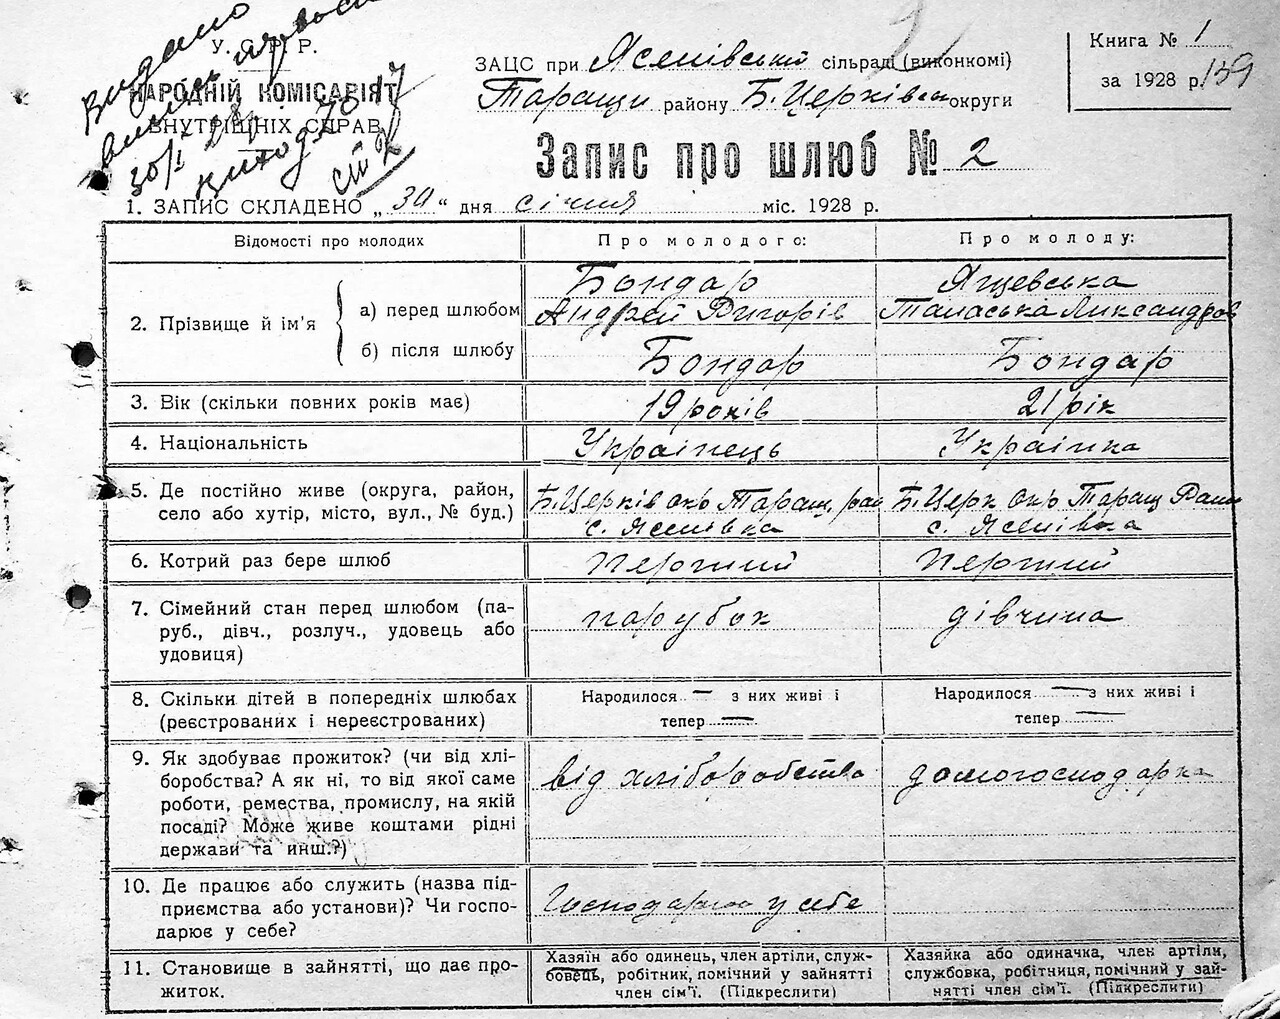 Видано
У. С. Р. Р.
НАРОДНІЙ КОМІСАРІЯТ
ВНУТРІШНІХ СПРАВ
30/I 28
ЗАЦС при Ясенівській сільраді (виконкомі)
Таращ району Б.Церківськ округи
Книга № 1
за 1928 р. 139
Запис про шлюб № 2
1. ЗАПИС СКЛАДЕНО „ 30 “ дня січня міс. 1928 р.
Відомості про молодих
Про молодого:
Про молоду:
2. Прізвище й ім'я
а) перед шлюбом
Бондар
Андрей Григорів
Ящевська
Танаська Лиександров
б) після шлюбу
Бондар
Бондар
3. Вік (скільки повних років має)
19 років
21 рік
4. Національність
Українець
Українка
5. Де постійно живе (округа, район,
село або хутір, місто, вул., № буд.)
Б.Церків окр Таращ. рай
с. Ясенівка
Б.Церк окр Таращ Раион
с. Ясенівка
6. Котрий раз бере шлюб
Перший
Перший
7. Сімейний стан перед шлюбом (па-
руб., дівч., розлуч., удовець або
удовиця)
парубок
дівчина
8. Скільки дітей в попередніх шлюбах
(реєстрованих і нереєстрованих)
Народилося — з них живі і
тепер —
Народилося — з них живі і
тепер —
9. Як здобуває прожиток? (чи від хлі-
боробства? А як ні, то від якої саме
роботи, ремества, промислу, на якій
посаді? Може живе коштами рідні
держави та инш.?)
від хліборобства
домогосподарка
10. Де працює або служить (назва під-
приємства або установи)? Чи госпо-
дарює у себе?
Господарює у себе
11. Становище в зайнятті, що дає про-
житок.
Хазяїн або одинець, член артіли, служ-
бовець, робітник, помічний у зайнятті
член сім'ї. (Підкреслити)
Хазяйка або одиначка, член артіли,
службовка, робітниця, помічний у зай-
нятті член сім'ї. (Підкреслити)